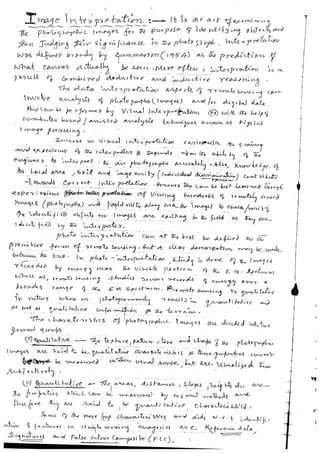 Image Interpretation: — It is an act of examining
the photographic images for the purpose of Identifying objects and
their Judging their significance in the photograph. Interpretation
was defined broadly by Summerson (1954) as the prediction of
what cannot actually be seen. More often, interpretation is a
result of combined deductive and inductive reasoning.
The data interpretation aspects of remote sensing can
involve analysis of photographs (images) and/or digital data.
This can be performed by Visual Interpretation or with the help of
computer based / assisted analysis techniques known as Digital
Image processing.
Success in Visual interpretation varies with the training
and experience of the interpreters & Depends upon the ability of the
engineer to interpret the air photographs accurately. Also, knowledge of
the Local area, and ingenuity (individual) contribute
towards correct interpretation. However this can be best learned through
experience of viewing hundreds of remotely sensed
images (photographs) and field visits along with the images to check/verify
the identified objects on images are existing in the field as they are
identified by the interpreter.
photo interpretation can at the best be defined as the
primitive form of remote sensing, but a clear demarcation may be made
between the two. In photo-interpretation study is done of the images
recorded by energy over the visible portion of the E.M. spectrum
whereas, remote sensing studies sensor records of energy over a
broader range of the EM spectrum. Remote sensing is qualitative
in nature where as photogrammetry results in quantitative and
as well as qualitative information of the terrain.
The characteristics of photographic images are divided into two
general groups.
(i) Qualitative — The texture, pattern, tone and shape of the photographic
images are said to be qualitative characteristics & these properties cannot
be measured in the usual sense, but are visualised
subjectively.
(ii) Quantitative — The areas, distances, slopes, heights etc are
the properties which can be measured by normal methods and
therefore they are said to be quantitative characteristics.
Some of the more imp characteristics and aids w.r.t identific-
ation of features in remote sensing imageries are Reference data,
Signatures and False Colour Composite (FCC).